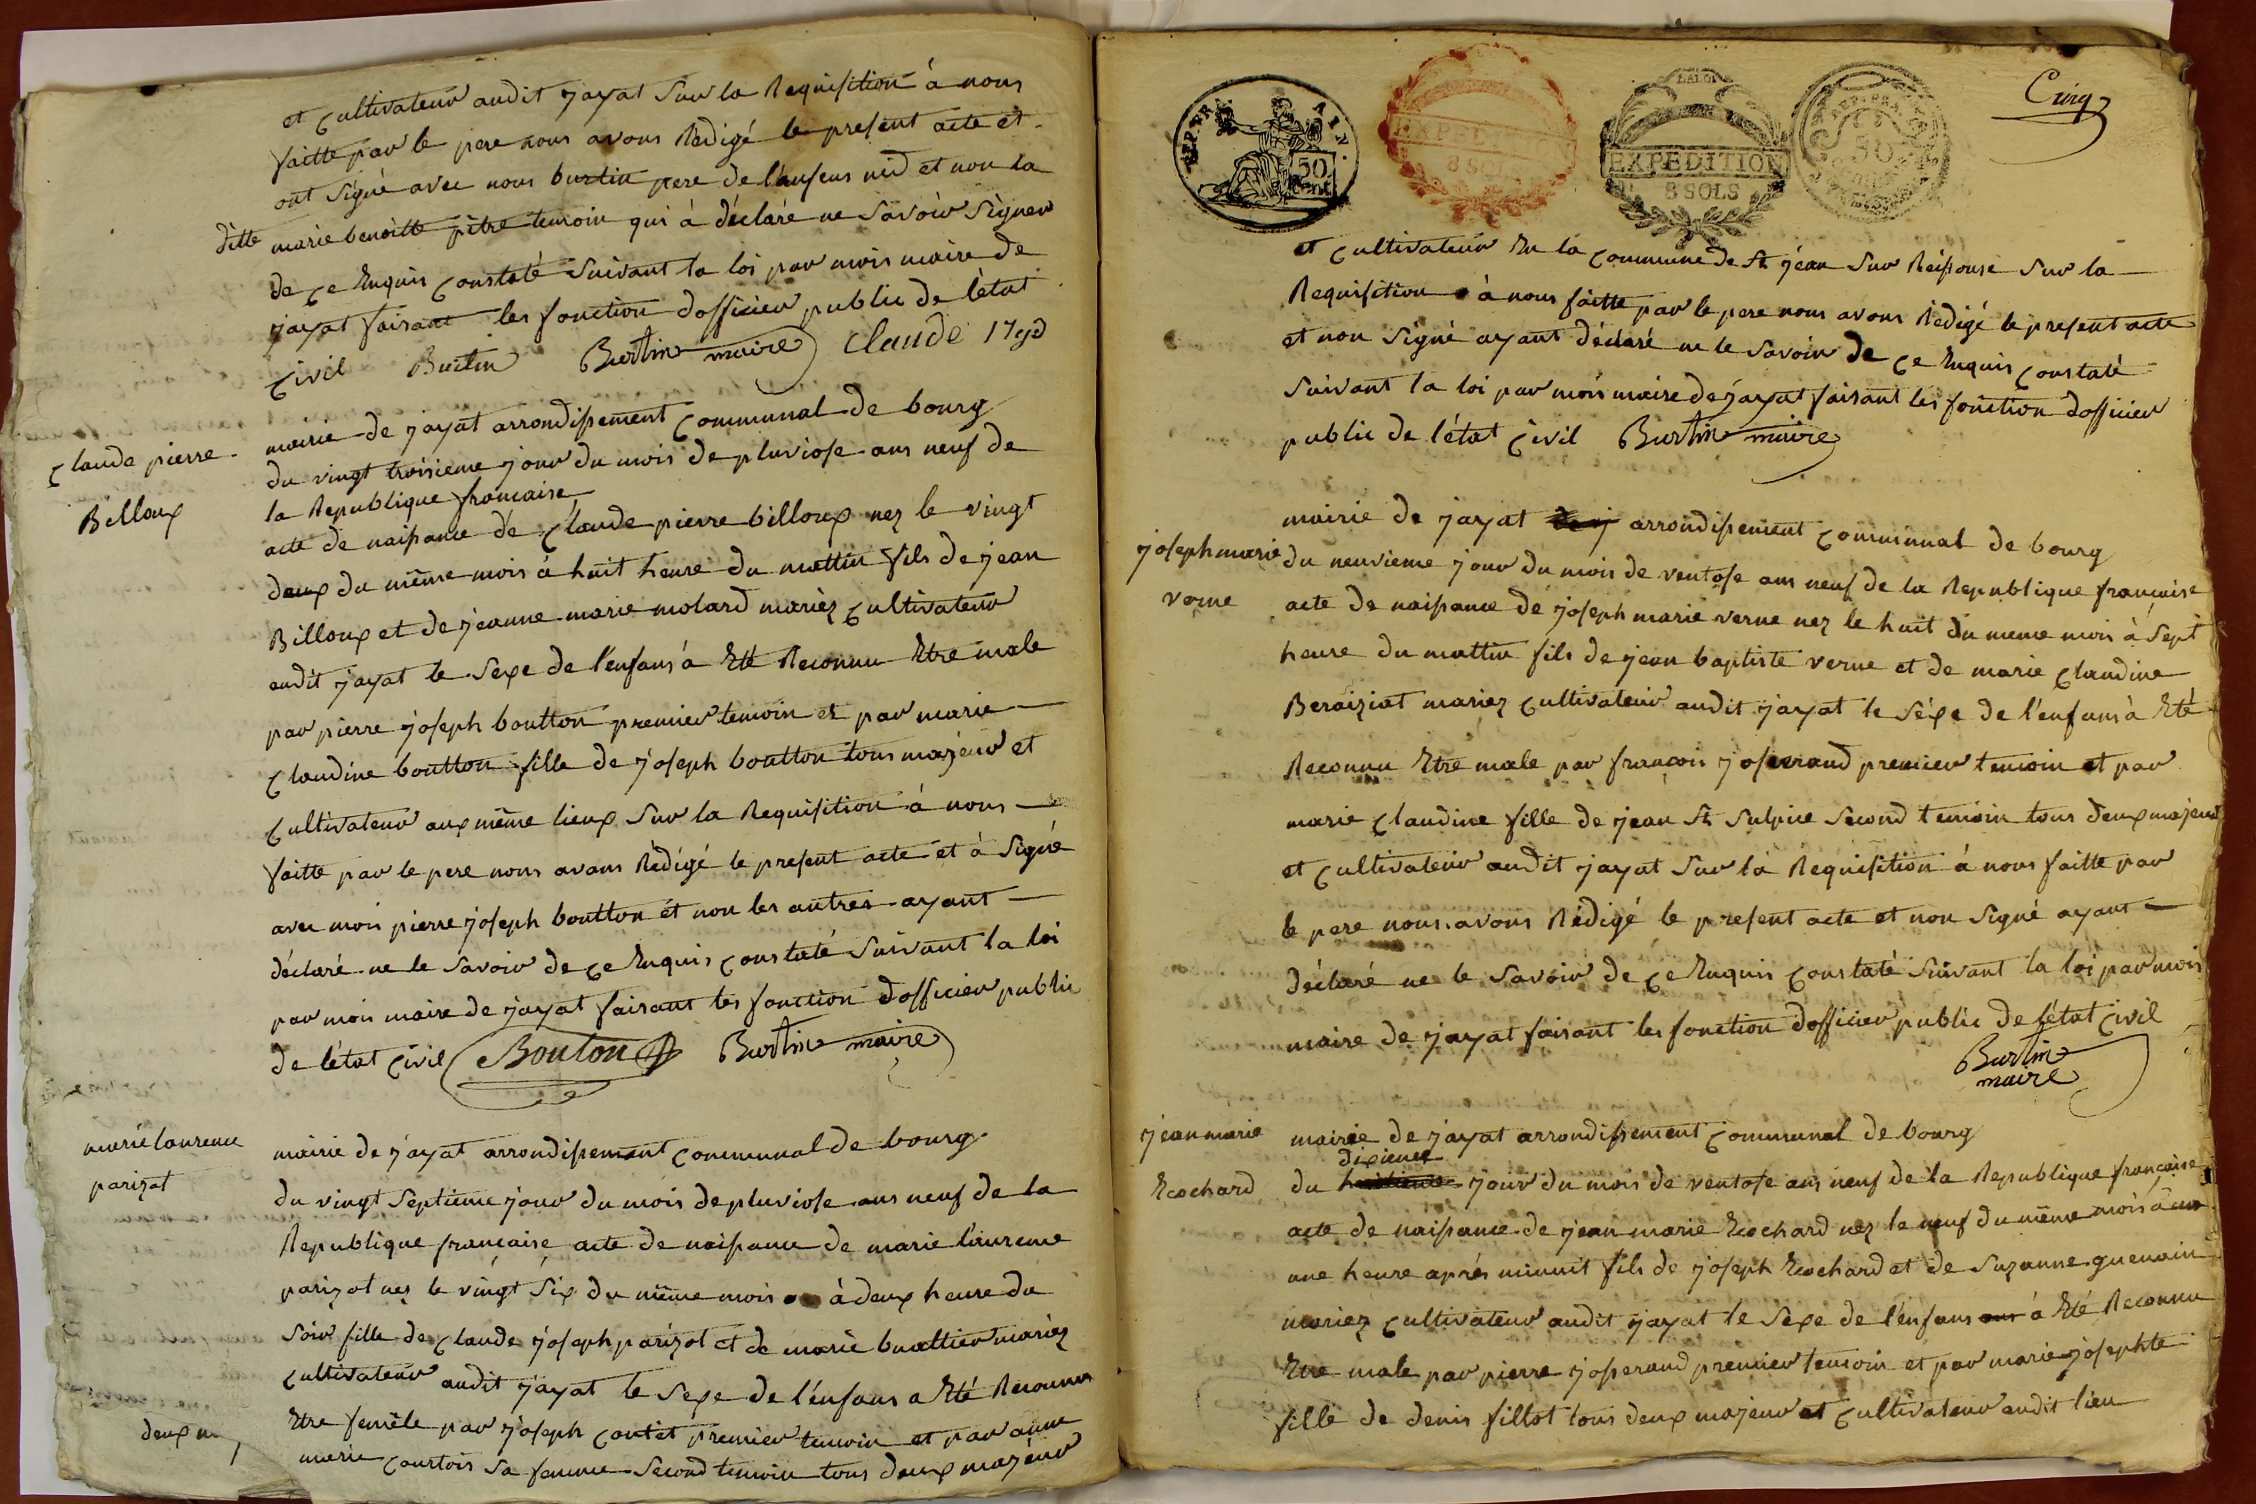 et cultivateur audit jayat sur la Requisition à nous
faitte par le pere nous avons Rédigé le present acte et
ont signé avec nous burtin pere de l'enfens nid et non la
ditte marie benoitte pitre temoin qui à déclaré ne savoir signer
de ce Enquis constaté suivant la loi par mois maire de
jayat faisant les fonction dofficier public de l'état
civil Burtin Burtin maire Claude 17qd
claude pierre
Billoux
mairie de jayat arrondissement communal de bourg
du vingt troisieme jour du mois de pluviose ans neuf de
la Republique francaise
acte de naissance de Claude pierre billoux nez le vingt
deux du même mois à huit heure du mattin fils de jean
Billoux et de jeanne marie molard mariez cultivateur
audit jayat le sexe de l'enfans à Eté Reconnu Etre male
par pierre joseph boutton premier temoin et par marie
Claudine boutton fille de joseph boutton tous majeur et
cultivateur aux même lieux sur la Requisition à nous
faitte par le pere nous avons Rédigé le present acte et à signé
avec mois pierre joseph boutton et non les autres ayant
déclaré ne le savoir de ce Enquis constaté suivant la loi
par mois maire de jayat faisant les fonction dofficier public
de l'état civil Bouton Burtin maire
marie laurence
parizot
mairie de jayat arrondissement communal de bourg
du vingt septieme jour du mois de pluviose ans neuf de la
Republique francaise acte de naissance de marie laurence
parizot nez le vingt six du même mois à deux heure du
soir fille de Claude joseph parizot et de marie buattier mariez
cultivateur audit jayat le sexe de l'enfans a Eté Reconnu
Etre femèle par joseph contet premier temoin et par anne
marie courtois sa femme second temoin tous deux majeur
deux m
DEP.T DE L'AIN.
50 Cent.
EXPEDITION
8 SOLS
LA LOI
EXPEDITION
8 SOLS
50
Cinq
et cultivateur En la commune de St jean sur Reissouse sur la
Requisition à nous faitte par le pere nous avons Rédigé le present acte
et non signé ayant déclaré ne le savoir de ce Enquis constaté
suivant la loi par mois maire de jayat faisant les fonction dofficier
public de l'état civil Burtin maire
joseph marie
verne
mairie de jayat de j arrondissement communal de bourg
du neuvieme jour du mois de ventose ans neuf de la Republique francaise
acte de naissance de joseph marie verne nez le huit du meme mois à sept
heure du mattin fils de jean baptiste verne et de marie Claudine
Beraiziat mariez cultivateur audit jayat le séxe de l'enfans à Eté
Reconnu Etre male par françois josserand premier temoin et par
marie Claudine fille de jean St sulpice second temoin tous deux majeur
et cultivateur audit jayat sur la Requisition à nous faitte par
le pere nous avons Rédigé le present acte et non signé ayant
déclaré ne le savoir de ce Enquis constaté suivant la loi par mois
maire de jayat faisant les fonction dofficier public de l'état civil
Burtin
maire
jean marie
Ecochard
mairie de jayat arrondissement communal de bourg
dixieme
du huitieme jour du mois de ventose ans neuf de la Republique française
acte de naissance de jean marie Ecochard nez le neuf du même mois à
une heure aprés minuit fils de joseph Ecochard et de suzanne guenain
mariez cultivateur audit jayat le sexe de l'enfans à Eté Reconnu
Etre male par pierre josserand premier temoin et par marie josephte
fille de denis fillot tous deux majeur et cultivateur audit lieu